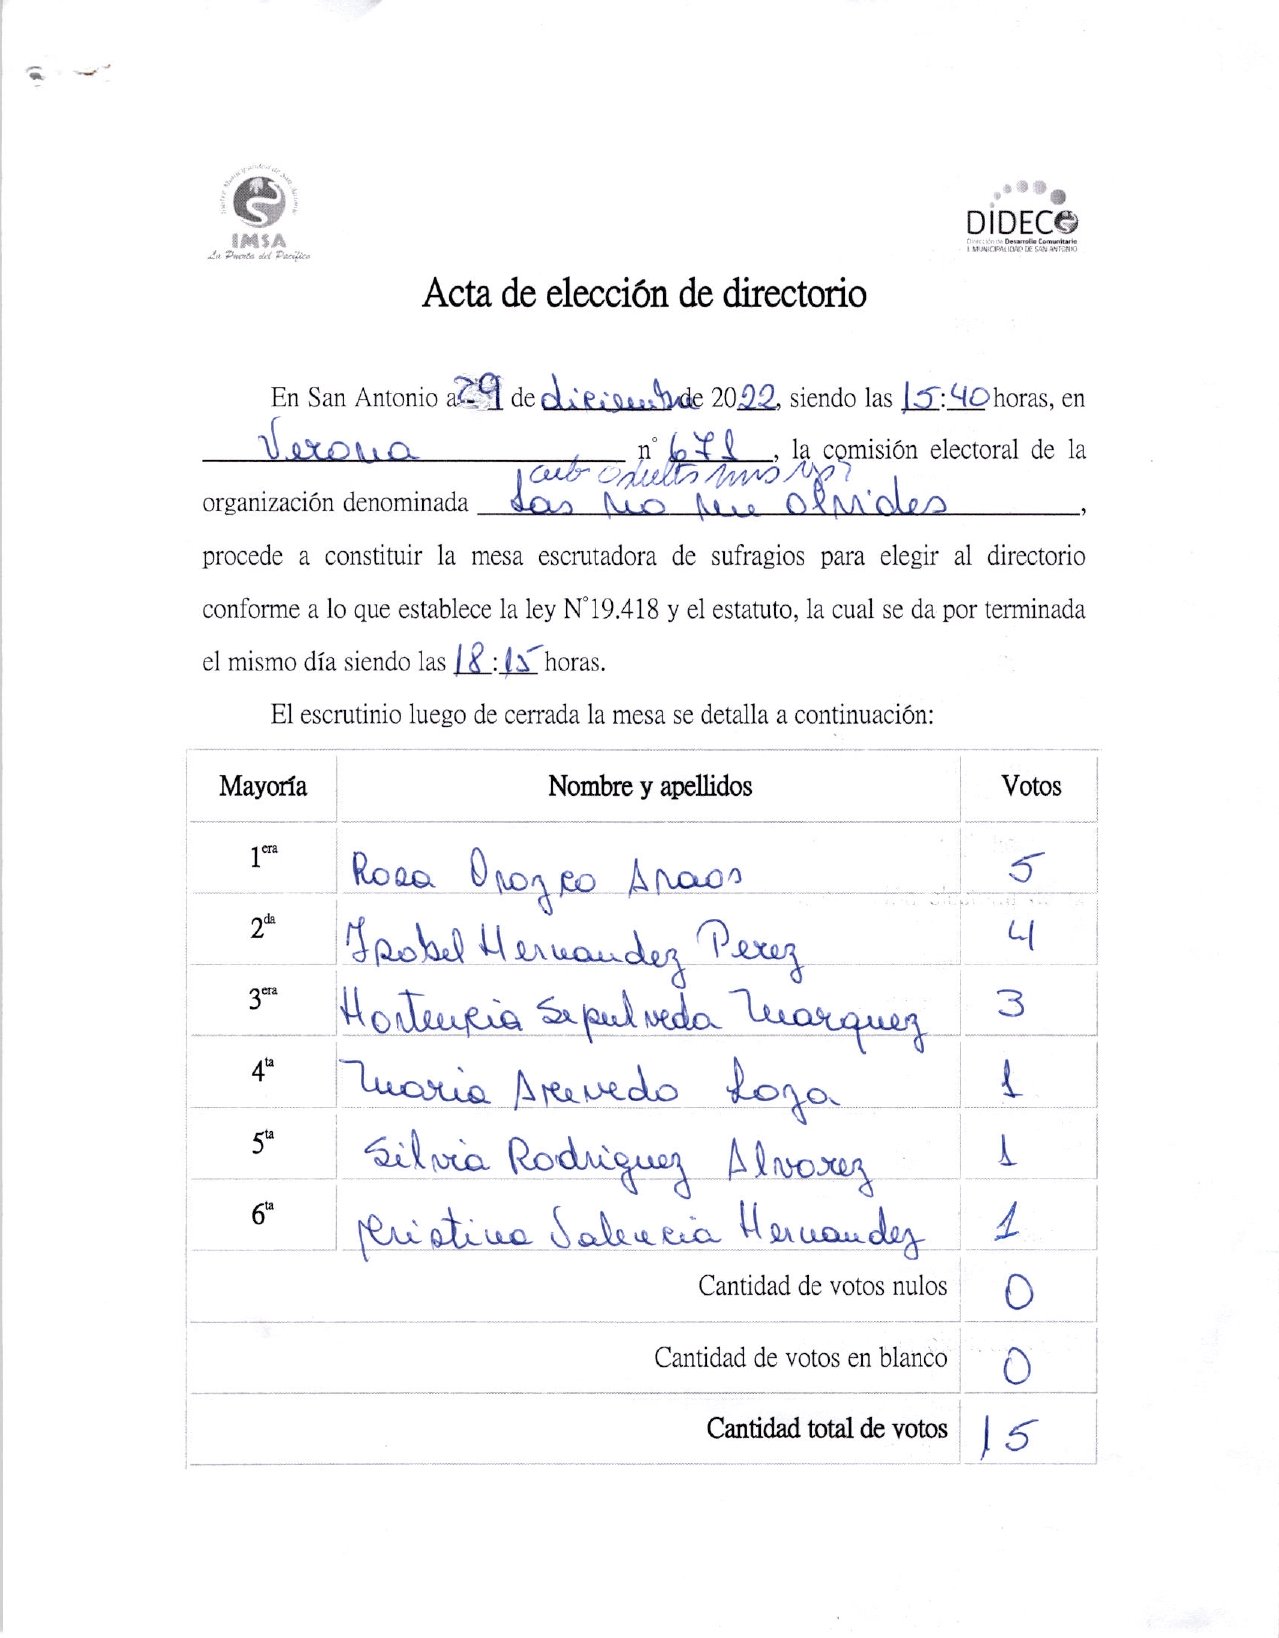 Ilustre Municipalidad de San Antonio
IMSA
La Puerta del Pacífico
DIDECO
Dirección de Desarrollo Comunitario
I. MUNICIPALIDAD DE SAN ANTONIO
Acta de elección de directorio
En San Antonio a 29 de diciembre de 2022, siendo las 15:40 horas, en
Verona n° 671, la comisión electoral de la
Club Adulto
organización denominada Las no me olvides,
procede a constituir la mesa escrutadora de sufragios para elegir al directorio
conforme a lo que establece la ley N°19.418 y el estatuto, la cual se da por terminada
el mismo día siendo las 18:15 horas.
El escrutinio luego de cerrada la mesa se detalla a continuación:
Mayoría Nombre y apellidos Votos
1era Rosa Orozco Araos 5
2da Isabel Hernandez Perez 4
3era Hortencia Sepulveda Marquez 3
4ta Maria Acevedo Loza 1
5ta Silvia Rodriguez Alvarez 1
6ta Cristina Valencia Hernandez 1
Cantidad de votos nulos 0
Cantidad de votos en blanco 0
Cantidad total de votos 15